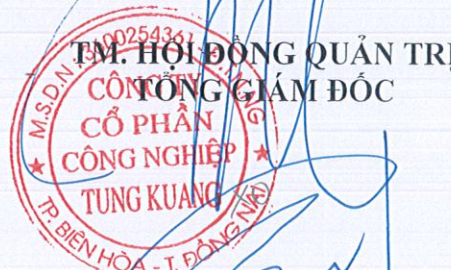 TM. HỘI ĐỒNG QUẢN TRỊ
TỔNG GIÁM ĐỐC
CÔNG TY
CỔ PHẦN
CÔNG NGHIỆP
TUNG KUANG
TP. BIÊN HÒA - T. ĐỒNG NAI